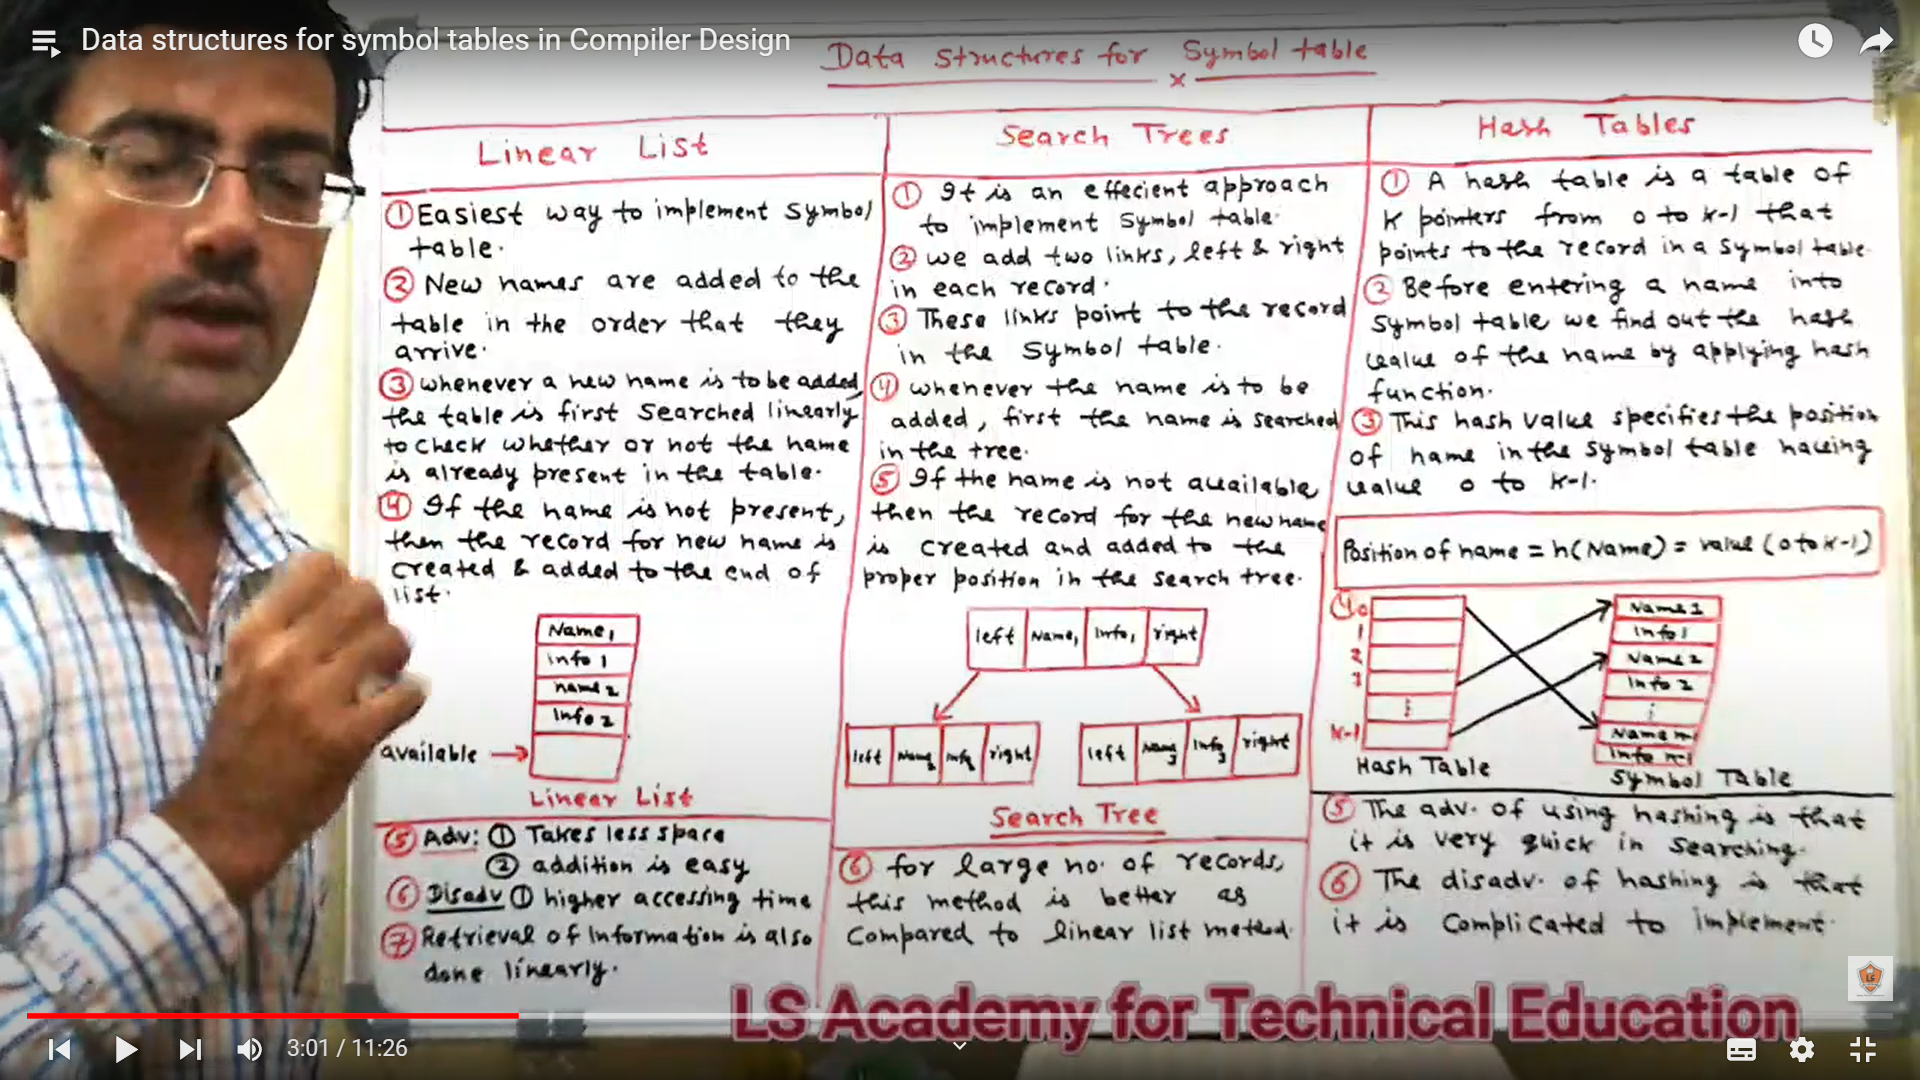 Data structures for symbol tables in Compiler Design
Data Structures for Symbol table
x
Linear List
① Easiest way to implement Symbol
table.
② New names are added to the
table in the order that they
arrive.
③ whenever a new name is to be added,
the table is first Searched linearly
to check whether or not the name
is already present in the table.
④ If the name is not present,
then the record for new name is
created & added to the end of
list.
Name1
info 1
name 2
Info 2
available →
Linear List
⑤ Adv: ① Takes less space
② addition is easy
⑥ Disadv ① higher accessing time
⑦ Retrieval of Information is also
done linearly.
Search Trees
① It is an effecient approach
to implement Symbol table.
② we add two links, left & right
in each record.
③ These links point to the record
in the Symbol table.
④ whenever the name is to be
added, first the name is searched
in the tree.
⑤ If the name is not available
then the record for the new name
is created and added to the
proper position in the search tree.
left Name1 Info1 right
left Name2 Info2 right
left Name3 Info3 right
Search Tree
⑥ for large no. of records,
this method is better as
compared to linear list method.
Hash Tables
① A hash table is a table of
K pointers from 0 to K-1 that
points to the record in a symbol table.
② Before entering a name into
Symbol table we find out the hash
value of the name by applying hash
function.
③ This hash value specifies the position
of name in the symbol table having
value 0 to K-1.
Position of name = h(Name) = value (0 to K-1)
④ 0
1
2
3
⋮
K-1
Hash Table
Name 1
Info 1
Name 2
Info 2
⋮
Symbol Table
⑤ The adv. of using hashing is that
it is very quick in searching.
⑥ The disadv. of hashing is that
it is Complicated to implement.
LS Academy for Technical Education
3:01 / 11:26